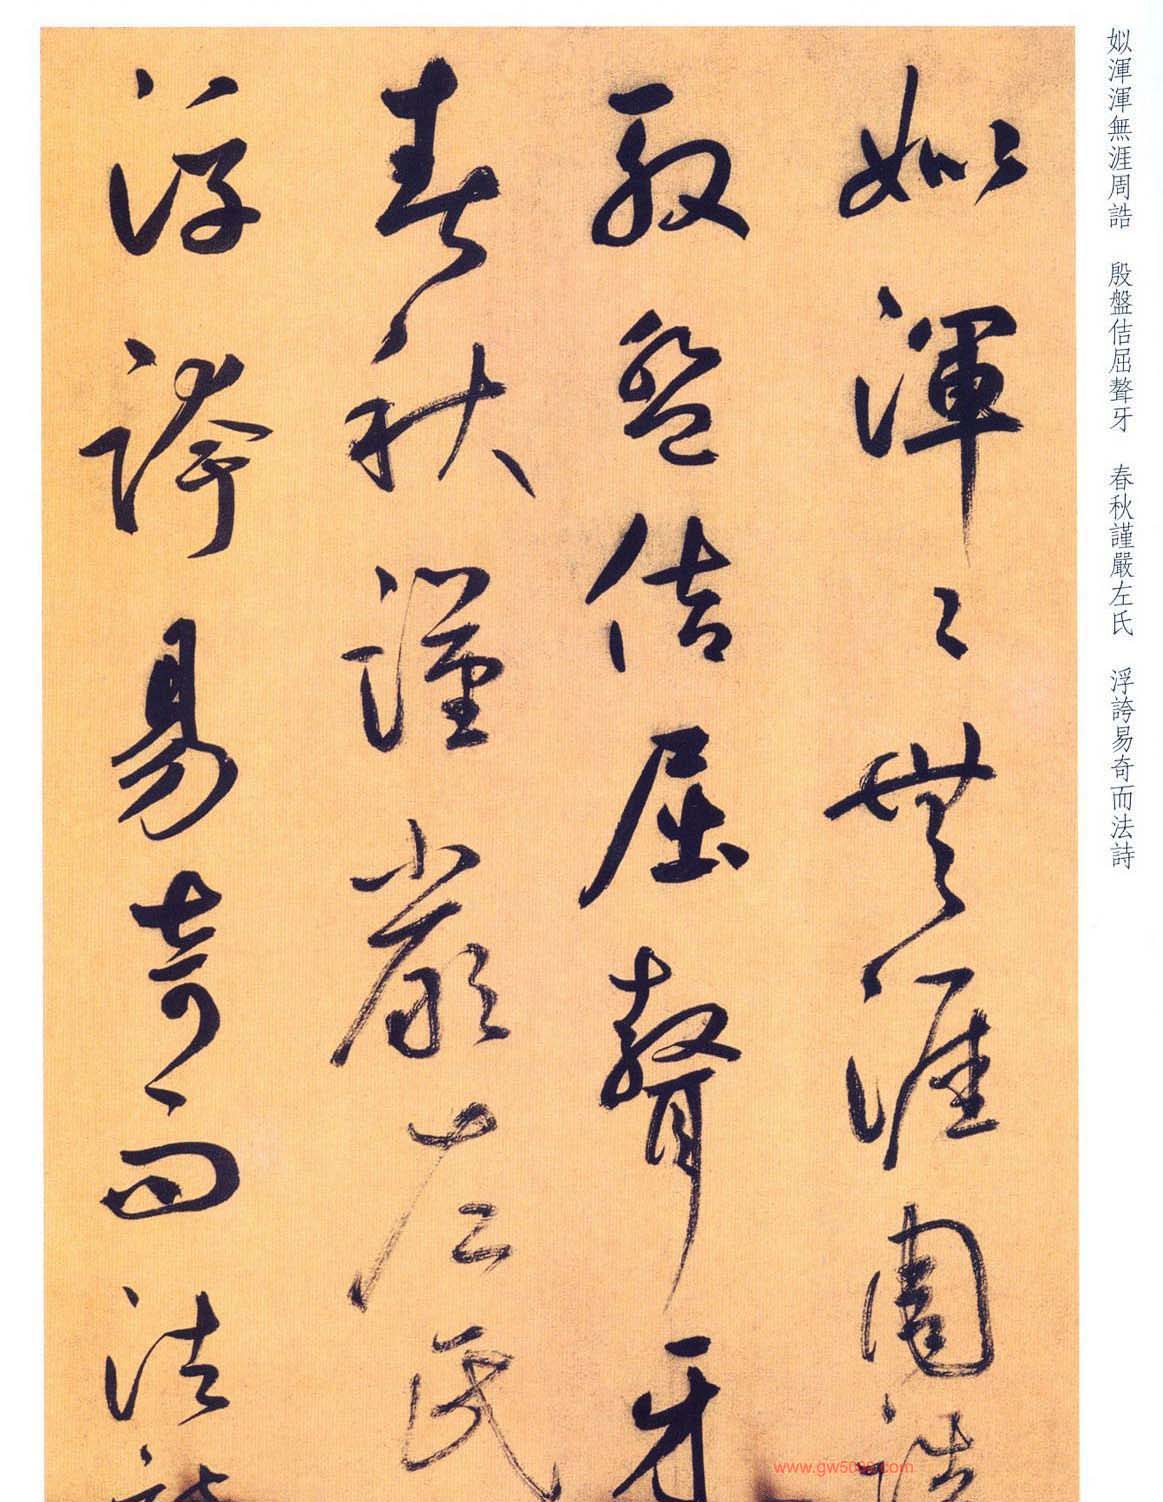 姒渾渾無涯周誥　殷盤佶屈聱牙　春秋謹嚴左氏　浮誇易奇而法詩
姒渾〻無涯周誥
殷盤佶屈聱牙
春秋謹嚴左氏
浮誇易奇而法詩